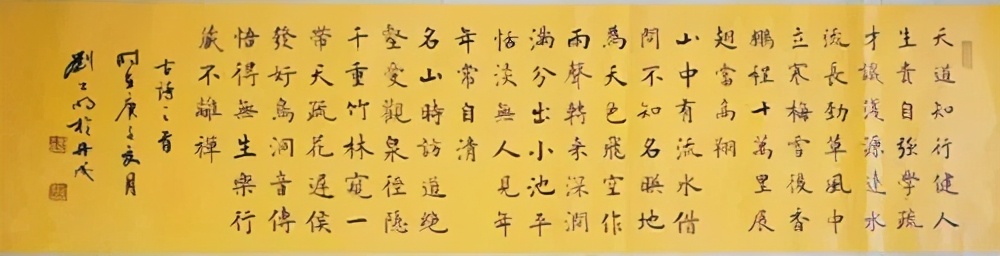 天道知行健人
生貴自強學疏
才識淺源遠水
流長勁草風中
立寒梅雪後香
鵬程十萬里展
翅當高翔
山中有流水借
問不知名映地
為天色飛空作
雨聲轉來深澗
滿分出小池平
恬淡無人見年
年常自清
名山時訪道絕
壑愛觀泉徑隱
千重竹林寬一
帶天疏花遲侯
發好鳥洞音傳
悟得無生樂行
藏不離禪
古詩三首
時在庚子夏月
劉明於丹成